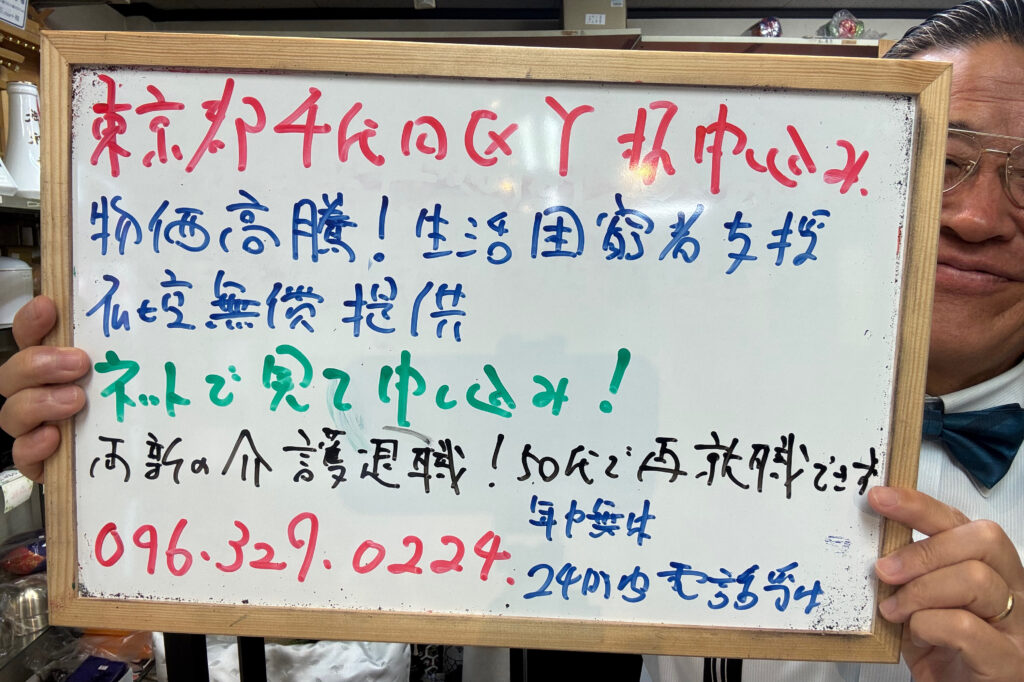 東京都千代田区Y様申込み.
物価高騰！生活困窮者支援
仏壇無償提供
ネットで見て申し込み！
両親の介護退職！50代で再就職できず
096.329.0224.
年中無休
24時間電話受付